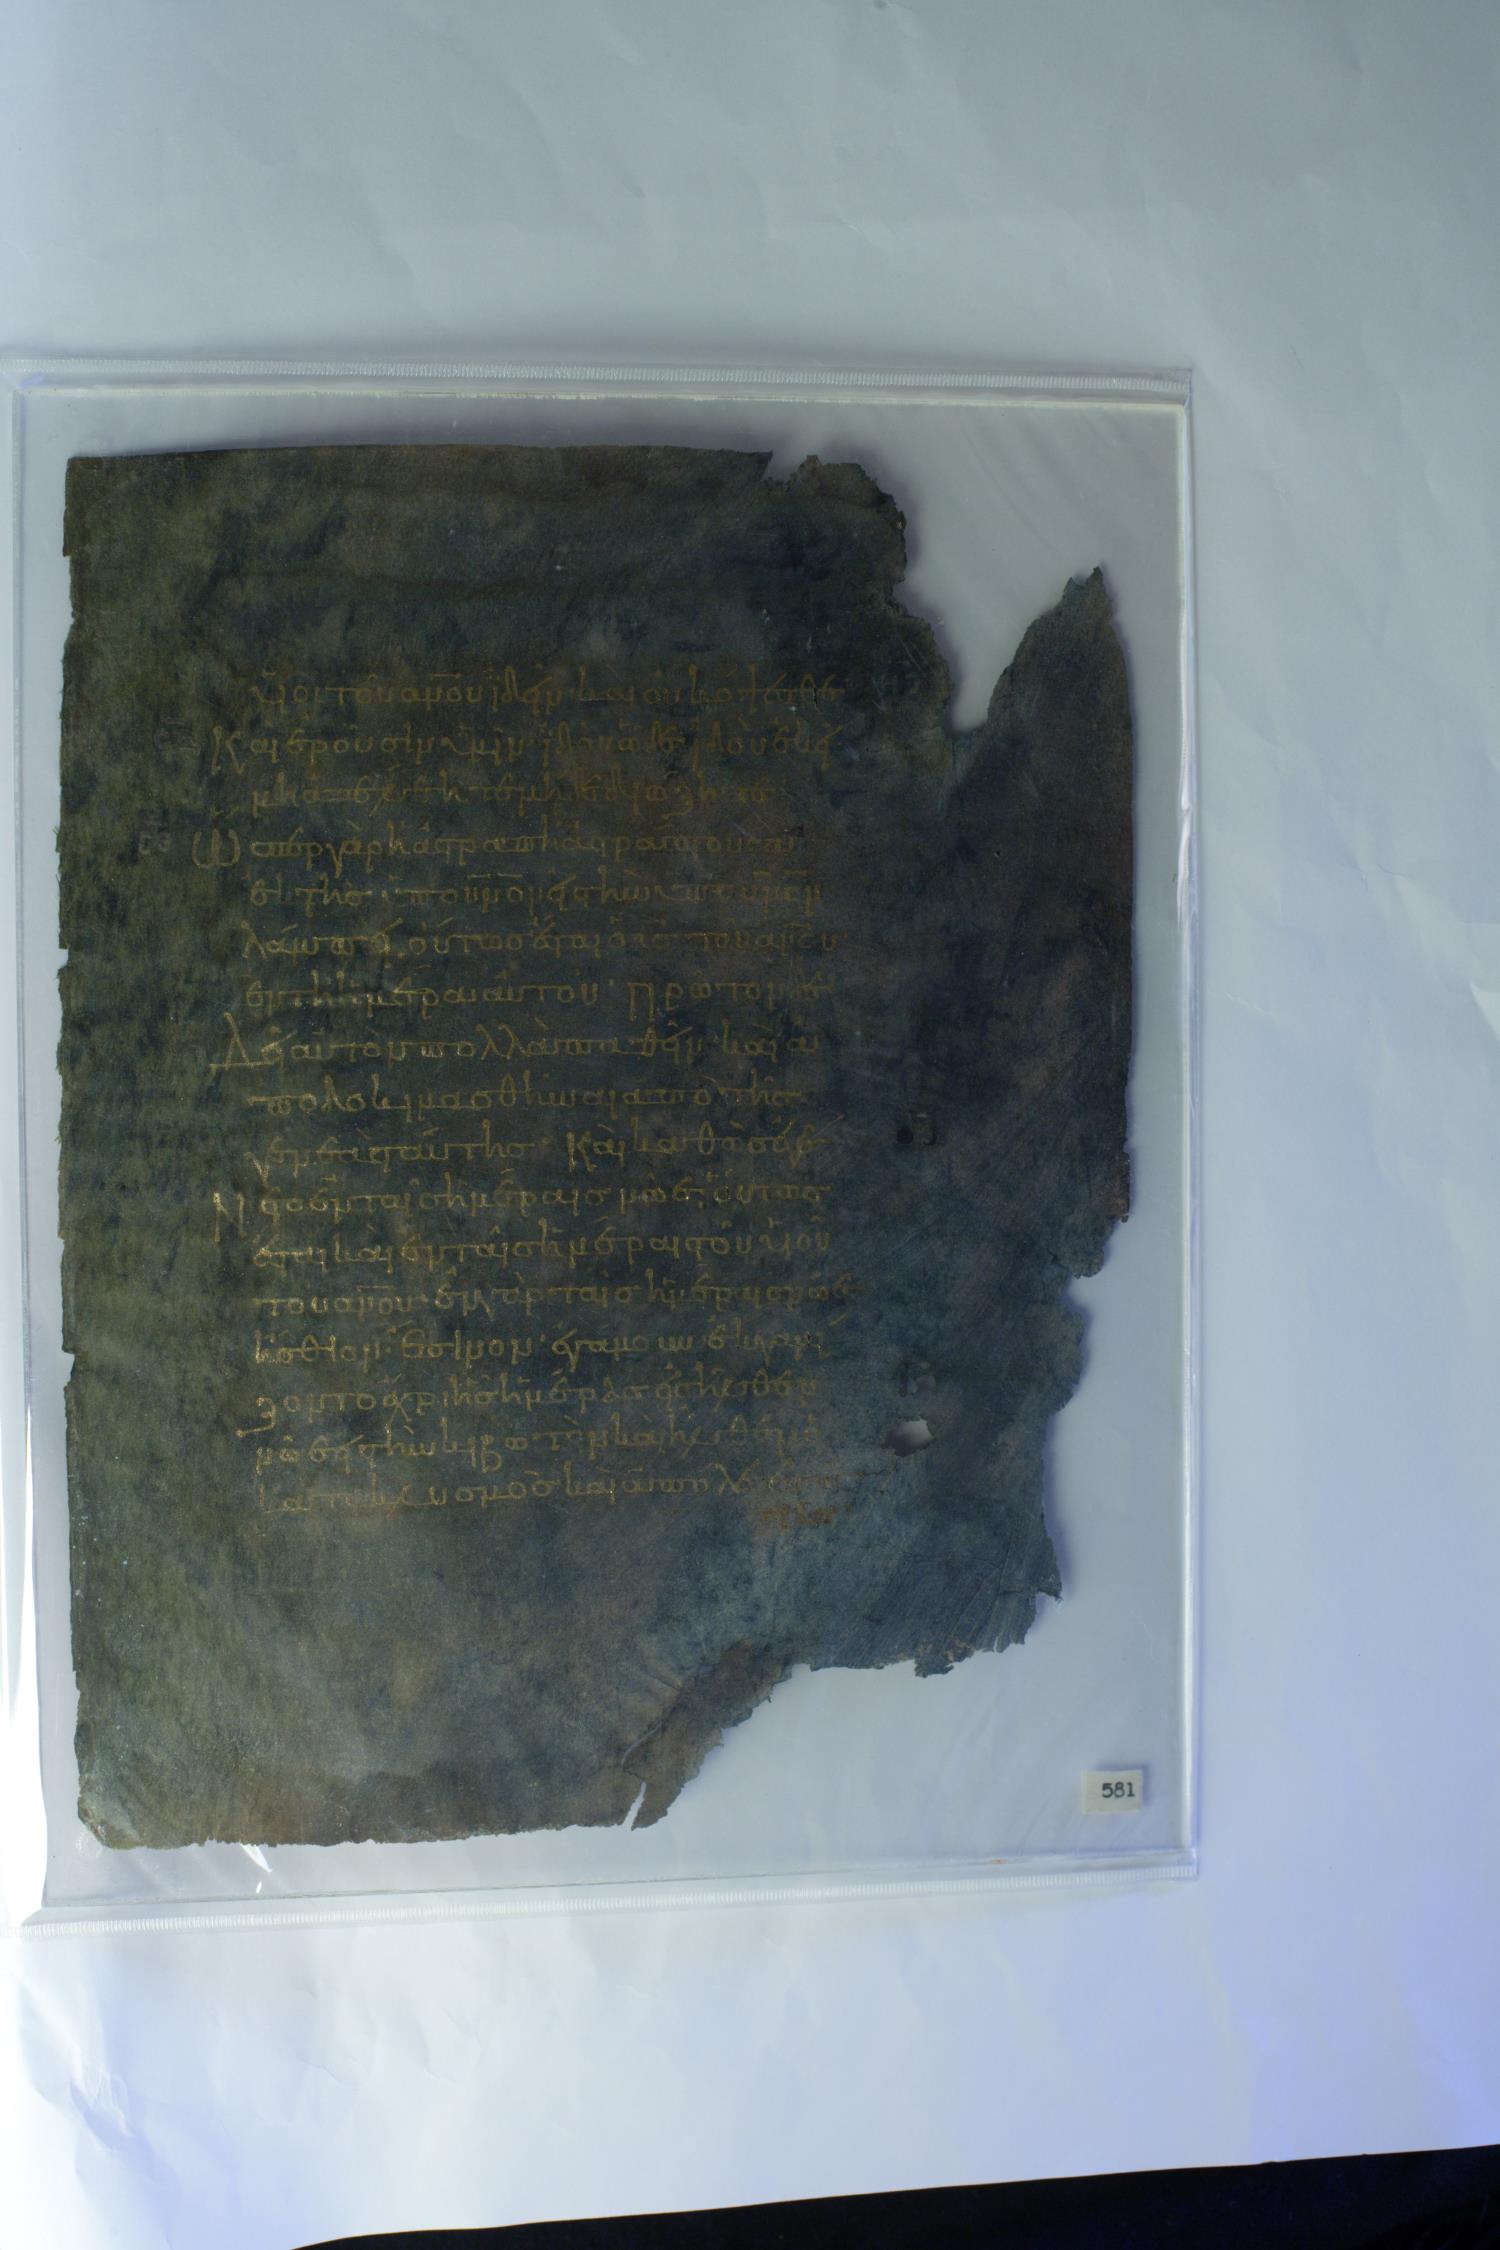 ϋἱοῦ τοῦ ἀν̅ου ἰδεῖν· καὶ οὐκ ὄψεσθε·
Καὶ ἐροῦσιν ὑμῖν· ἰδοὺ ὧδε ἰδοὺ ἐκεῖ·
μὴ ἀπέλθητε μηδὲ διώξητε·
Ὥσπερ γὰρ ἡ ἀστραπὴ ἀστράπτουσα
ἐκ τῆς ὑπ' οὐν̅ον εἰς τὴν ὑπ' οὐν̅ον
λάμπει, οὕτως ἔσται ὁ υἱὸς τοῦ ἀν̅ου
ἐν τῆ ἡμέραι αὐτοῦ· Πρῶτον δὲ
Δεῖ αὐτὸν πολλὰ παθεῖν· καὶ ἀ
ποδοκιμασθῆναι ἀπὸ τῆς
γενεᾶς ταύτης· Καὶ καθὼς ἐγέ
Νετο ἐν ταῖς ἡμέραις νῶε· οὕτως
ἔσται καὶ ἐν ταῖς ἡμέραις τοῦ υἱοῦ
τοῦ ἀν̅ου·
ἤσθιον· ἔπινον· ἐγάμουν· ἐξεγαμί
ζοντο ἄχρι ἧς ἡμέρας εἰσῆλθεν
νῶε εἰς τὴν κιβωτὸν καὶ ἦλθεν ὁ
κατακλυσμὸς καὶ ἀπώλεσεν
581